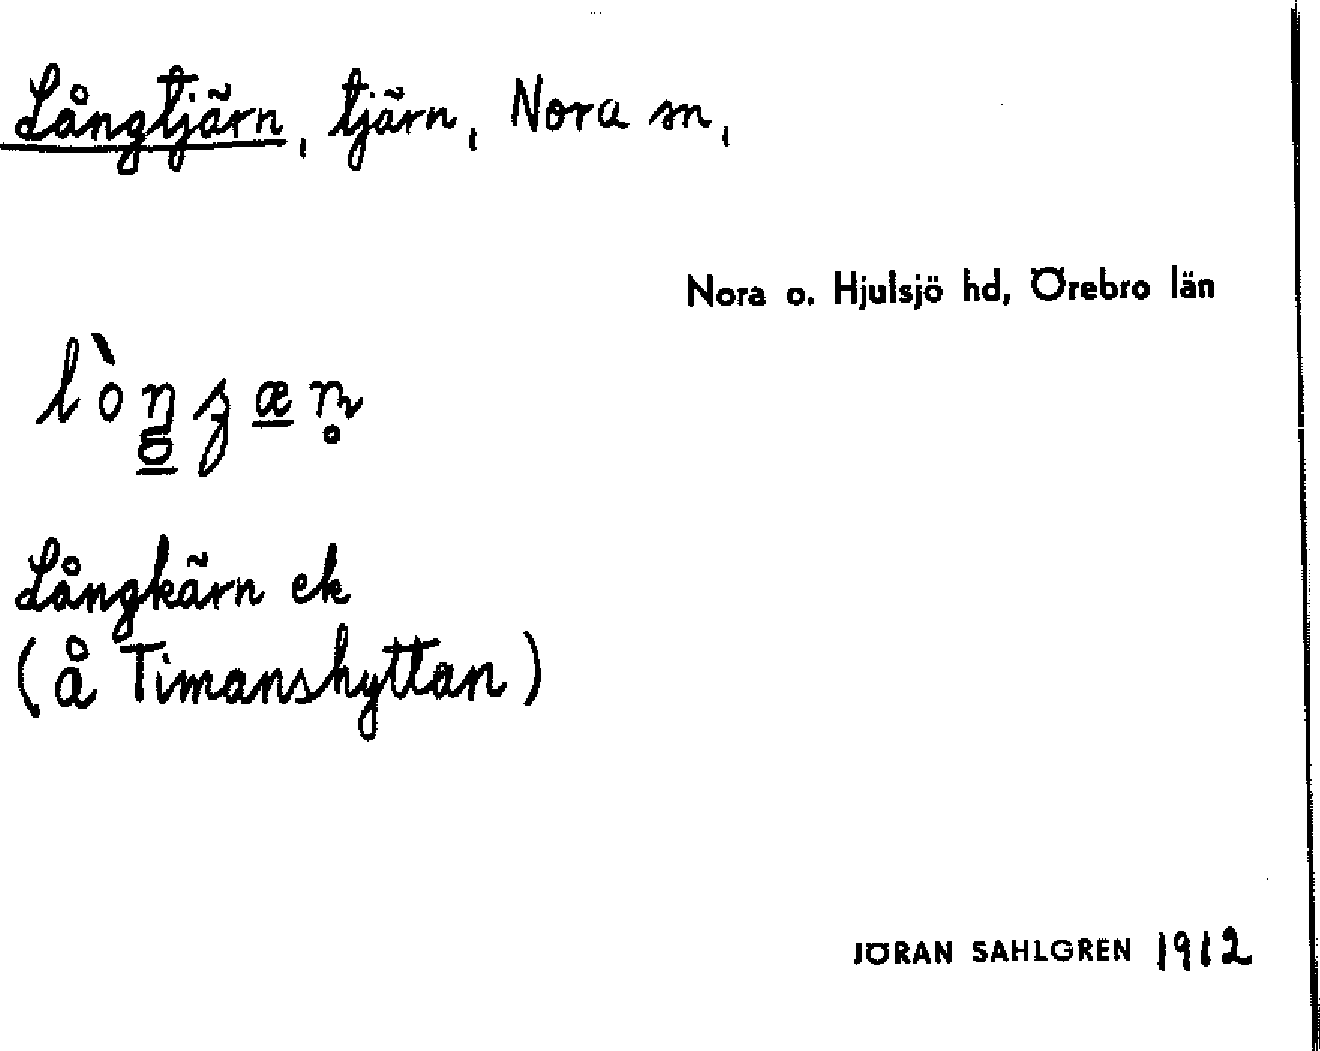 Långtjärn, tjärn, Nora sn,
Nora o. Hjulsjö hd, Örebro län
Långkärn ek
(å Timanshyttan)
JÖRAN SAHLGREN 1912